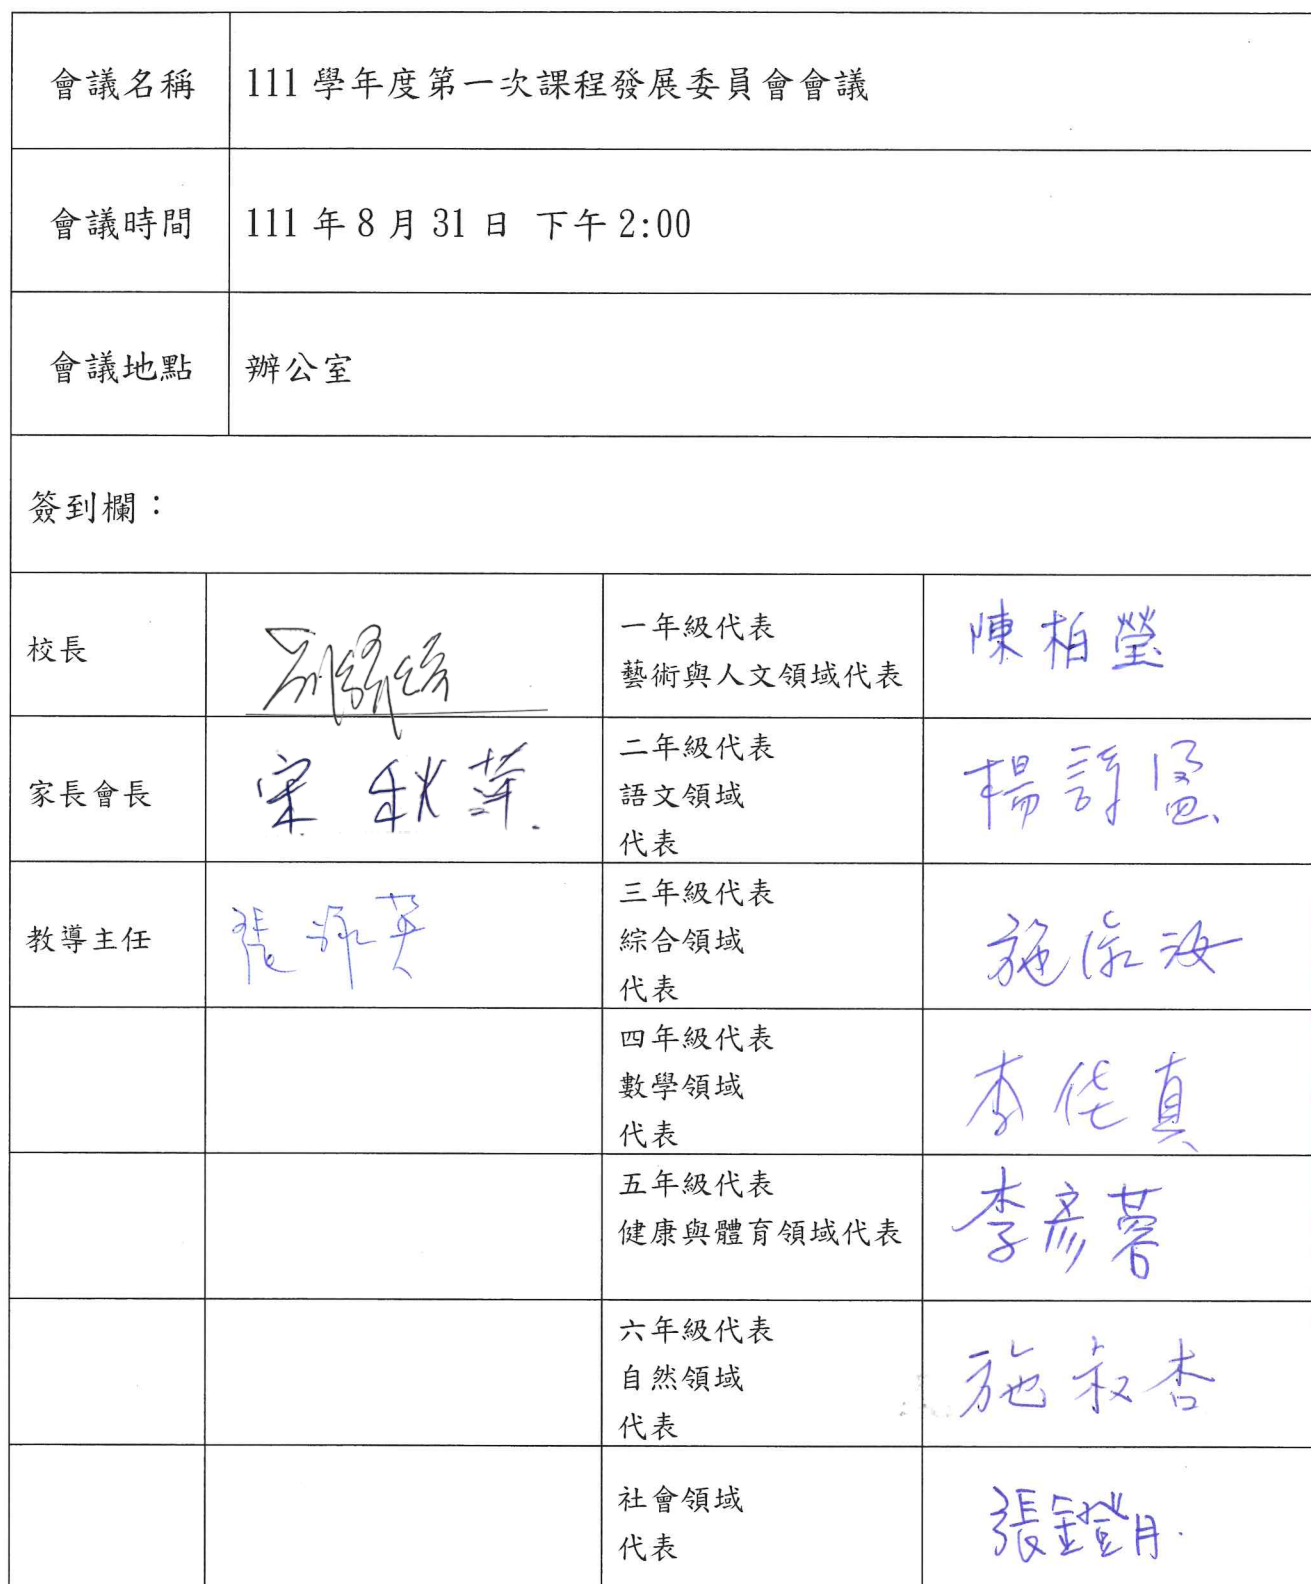 會議名稱 111 學年度第一次課程發展委員會會議
會議時間 111 年 8 月 31 日 下午 2:00
會議地點 辦公室
簽到欄：
校長
一年級代表
藝術與人文領域代表
陳柏瑩
家長會長
宋秋萍
二年級代表
語文領域
代表
楊詩盈
教導主任
張
英
三年級代表
綜合領域
代表
施
汝
四年級代表
數學領域
代表
李佳真
五年級代表
健康與體育領域代表
李彥蓉
六年級代表
自然領域
代表
施叔杏
社會領域
代表
張鐙月